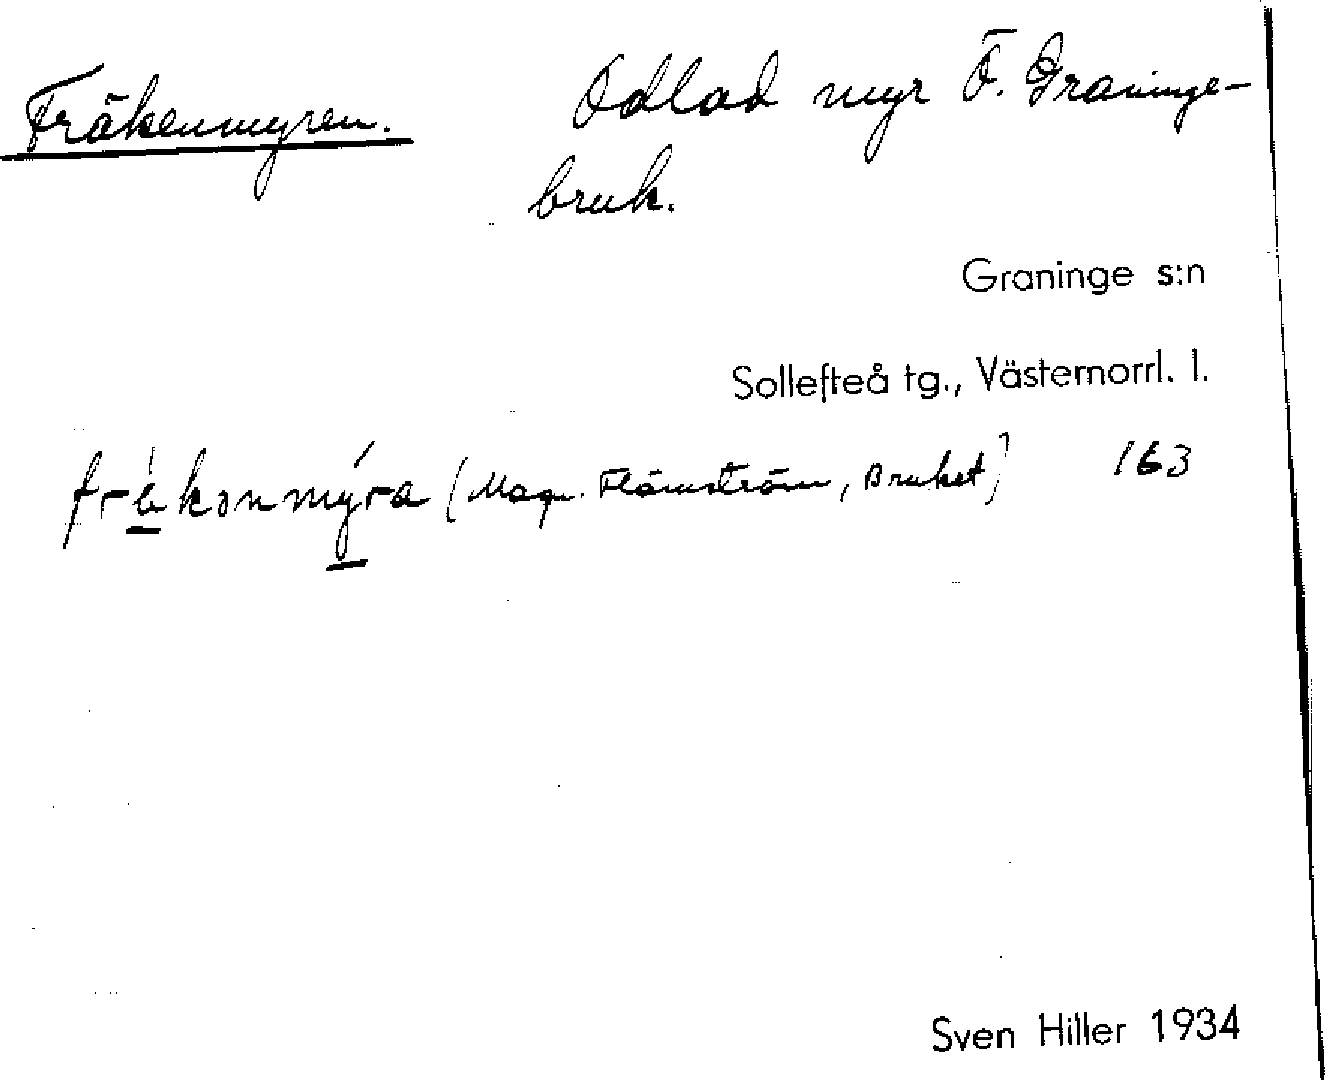 Fräkenmyren. Odlad myr Ö. Graninge-
bruk.
Graninge s:n
Sollefteå tg., Västernorrl. l.
(Magn. Flömström, Bruket) 163
Sven Hiller 1934